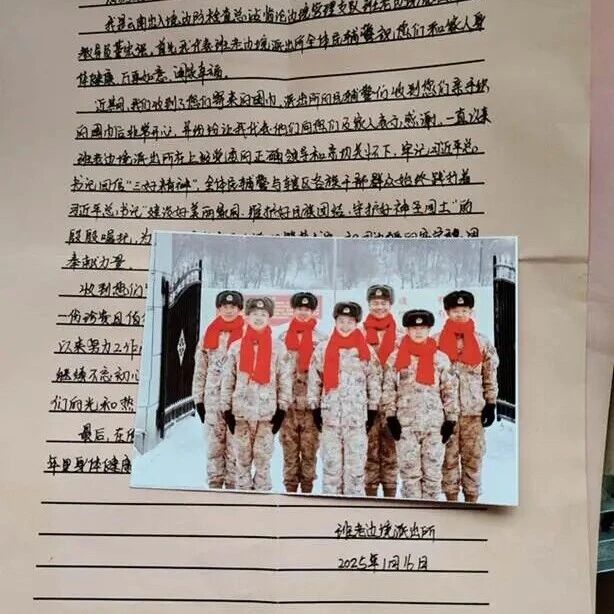 我是云南出入境边防检查总站临沧边境管理支队班老边境派出所
教导员董宏强，首先我代表班老边境派出所全体民辅警祝您们和家人身
体健康、万事如意、阖家幸福。
近期，我们收到了您们寄来的围巾，派出所的民辅警们收到您们亲手织
的围巾后非常开心，并纷纷让我代表他们向您们及家人表示感谢。一直以来
班老边境派出所在上级党委的正确领导和亲切关怀下，牢记习近平总
书记回信"三好精神"，全体民辅警与辖区各族干部群众始终践行着
习近平总书记"建设好美丽家园、维护好民族团结、守护好神圣国土"的
殷殷嘱托，为
奉献力量。
收到您们
一份珍贵且值
以来努力工作
继续不忘初心
们的光和热
最后，在
年里身体健康
班老边境派出所
2025年1月16日